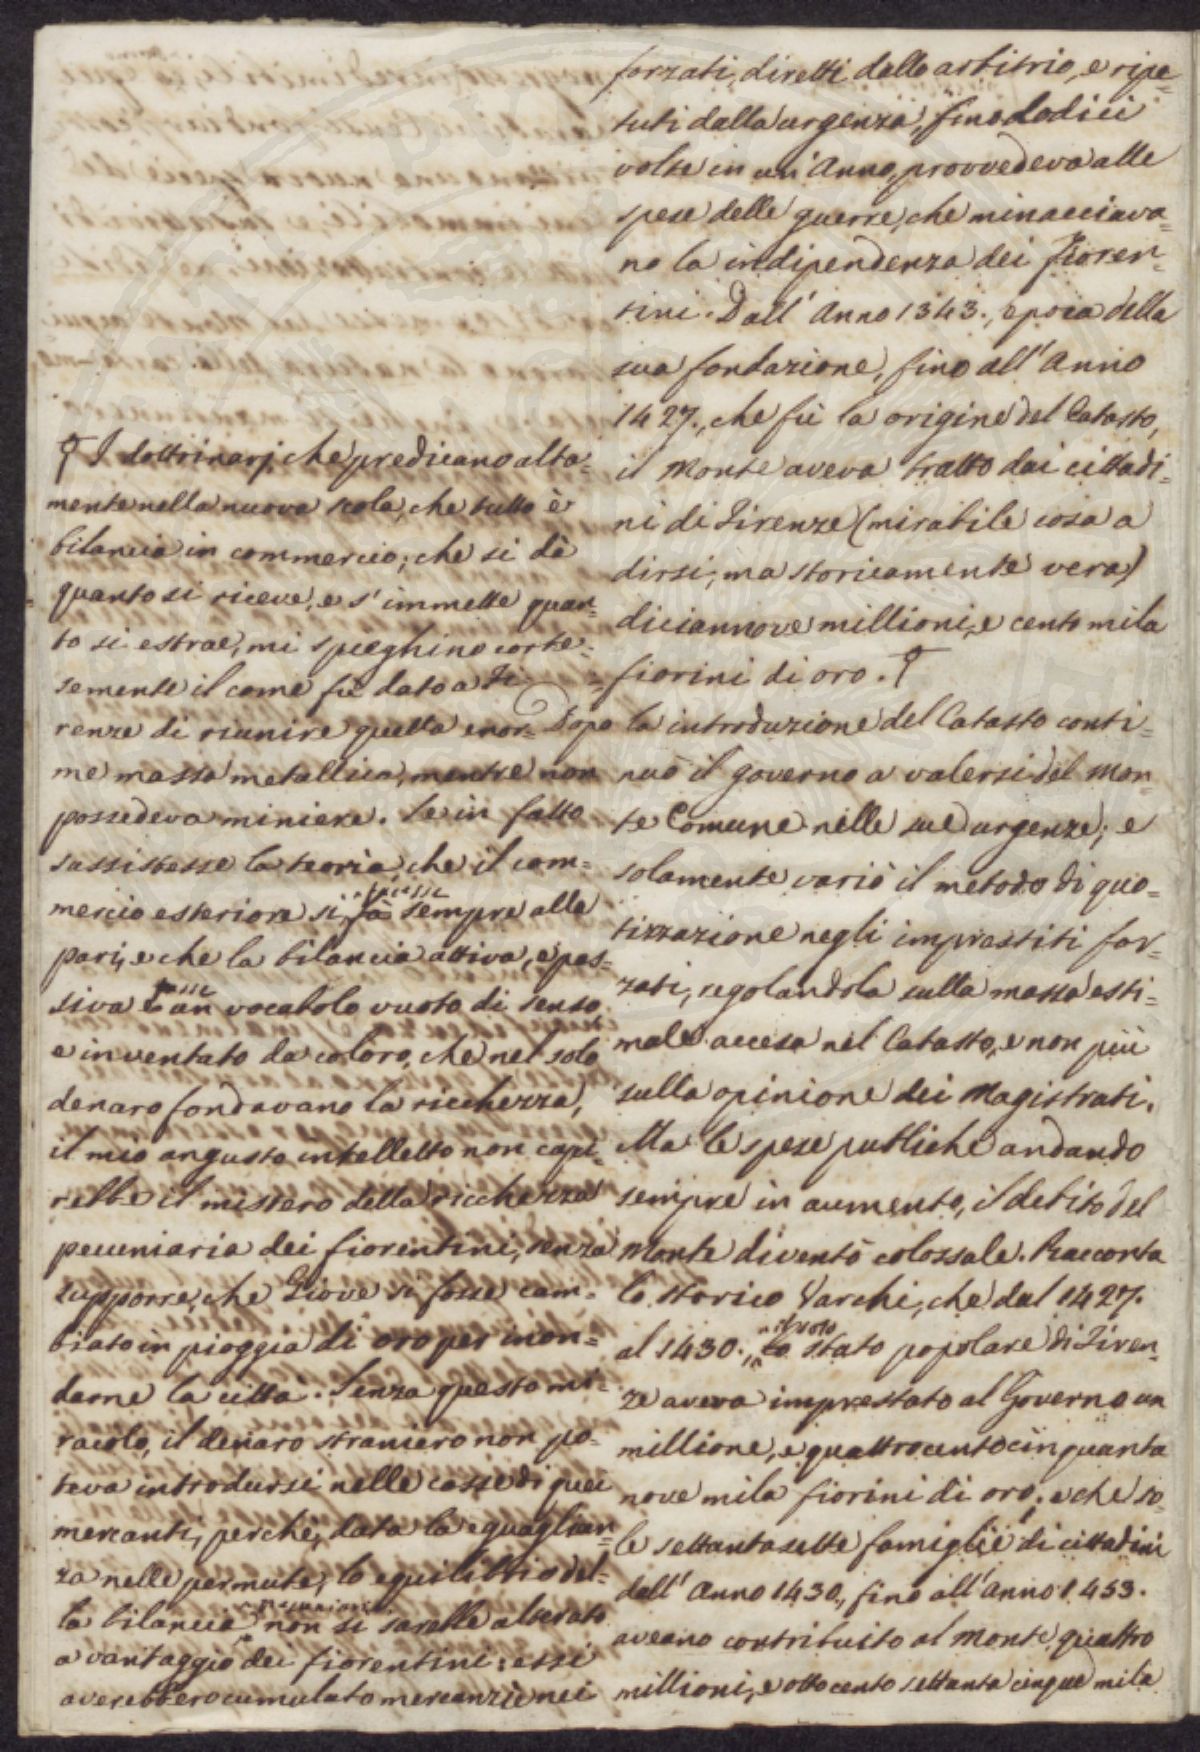 forzati, diretti dallo arbitrio, e ripe=
tuti dalla urgenza, fino dodici
volte in un' Anno, provvedeva alle
spese delle guerre, che minacciava=
no la indipendenza dei fioren=
tini. Dall' Anno 1343., epoca della
sua fondazione, fino all' Anno
1427., che fù la origine del Catasto,
il Monte aveva tratto dai cittadi=
ni di Firenze (mirabile cosa a
dirsi, ma storicamente vera)
diciannove millioni, e cento mila
fiorini di oro.
Dopo la introduzione del Catasto conti=
nuò il governo a valersi del Mon=
te Comune nelle sue urgenze; e
solamente variò il metodo di quo=
tizzazione negli imprestiti for=
zati, regolandola sulla massa esti=
male accesa nel Catasto, e non più
sulla opinione dei Magistrati.
Ma le spese pubbliche andando
sempre in aumento, il debito del
Monte diventò colossale. Racconta
lo storico Varchi, che dal 1427.
al 1430. lo Stato popolare di Firen=
ze aveva imprestato al Governo un
millione, e quattrocento cinquanta
nove mila fiorini di oro, e che so=
le settanta sette famiglie di cittadini
dall' Anno 1430., fino all' Anno 1453.
aveano contribuito al Monte quattro
millioni, e otto cento settanta cinque mila
I dottrinarj, che predicano alta=
mente nella nuova scola, che tutto è
bilancia in commercio; che si dà
quanto si riceve, e s' immette quan=
to si estrae, mi spieghino corte=
semente il come fù dato a Fi=
renze di riunire quella enor=
me massa metallica, mentre non
possedeva miniere. Se in fatto
sussistesse la teoria, che il com=
mercio esteriore si facesse sempre alla
pari, e che la bilancia attiva, e pas=
siva fosse un vocabolo vuoto di senso
e inventato da coloro, che nel solo
denaro fondavano la ricchezza,
il mio angusto intelletto non capi=
rebbe il mistero della ricchezza
pecuniaria dei fiorentini, senza
supporre, che Giove si fosse cam=
biato in pioggia di oro per inon=
darne la città. Senza questo mi=
racolo, il denaro straniero non po=
teva introdursi nelle casse di quei
mercanti, perchè, data la eguaglian=
za nelle permute, lo equilibrio del=
la bilancia pecuniaria non si sarebbe alterato
a vantaggio dei fiorentini: essi
averebbero cumulato mercanzie nei